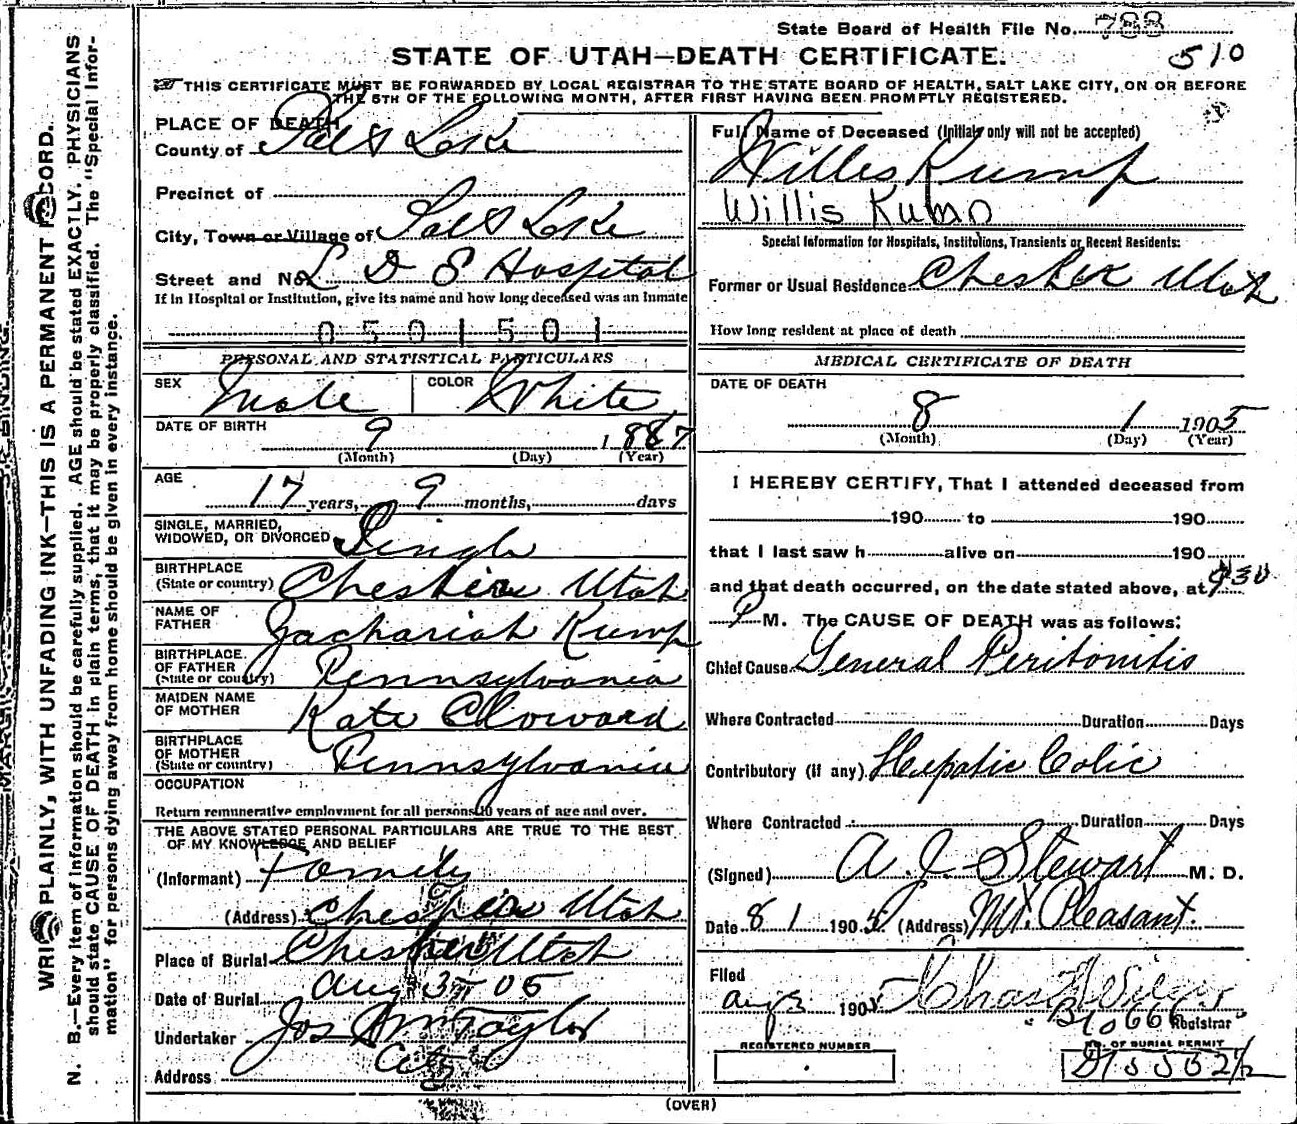 State Board of Health File No. 788
510
STATE OF UTAH—DEATH CERTIFICATE.
THIS CERTIFICATE MUST BE FORWARDED BY LOCAL REGISTRAR TO THE STATE BOARD OF HEALTH, SALT LAKE CITY, ON OR BEFORE
THE 5TH OF THE FOLLOWING MONTH, AFTER FIRST HAVING BEEN PROMPTLY REGISTERED.
PLACE OF DEATH
County of Salt Lake
Precinct of
City, Town or Village of Salt Lake
Street and No. L D S Hospital
If in Hospital or Institution, give its name and how long deceased was an inmate
0501501
PERSONAL AND STATISTICAL PARTICULARS
SEX Male COLOR White
DATE OF BIRTH
9 1887
(Month) (Day) (Year)
AGE
17 years, 9 months, days
SINGLE, MARRIED,
WIDOWED, OR DIVORCED Single
BIRTHPLACE
(State or country) Chester Utah
NAME OF
FATHER Zachariah Kump
BIRTHPLACE
OF FATHER
(State or country) Pennsylvania
MAIDEN NAME
OF MOTHER Kate Cloward
BIRTHPLACE
OF MOTHER
(State or country) Pennsylvania
OCCUPATION
Return remunerative employment for all persons 10 years of age and over.
THE ABOVE STATED PERSONAL PARTICULARS ARE TRUE TO THE BEST
OF MY KNOWLEDGE AND BELIEF
(Informant) Family
(Address) Chester Utah
Place of Burial Chester Utah
Date of Burial Aug 3 05
Undertaker Jos Wm Taylor
Address City
Full Name of Deceased (Initials only will not be accepted)
Willes Kump
Willis Kump
Special Information for Hospitals, Institutions, Transients or Recent Residents:
Former or Usual Residence Chester Utah
How long resident at place of death
MEDICAL CERTIFICATE OF DEATH
DATE OF DEATH
8 1 1905
(Month) (Day) (Year)
I HEREBY CERTIFY, That I attended deceased from
190 to 190
that I last saw h alive on 190
and that death occurred, on the date stated above, at 930
P M. The CAUSE OF DEATH was as follows:
Chief Cause General Peritonitis
Where Contracted Duration Days
Contributory (if any) Hepatic Colic
Where Contracted Duration Days
(Signed) A. J. Stewart M. D.
Date 8 1 1905 (Address) Mt. Pleasant.
Filed
Aug 3 1905
B10666 Registrar
REGISTERED NUMBER
NO. OF BURIAL PERMIT
(OVER)
WRITE PLAINLY, WITH UNFADING INK—THIS IS A PERMANENT RECORD.
N. B.—Every item of information should be carefully supplied. AGE should be stated EXACTLY. PHYSICIANS
should state CAUSE OF DEATH in plain terms, that it may be properly classified. The "Special Infor-
mation" for persons dying away from home should be given in every instance.